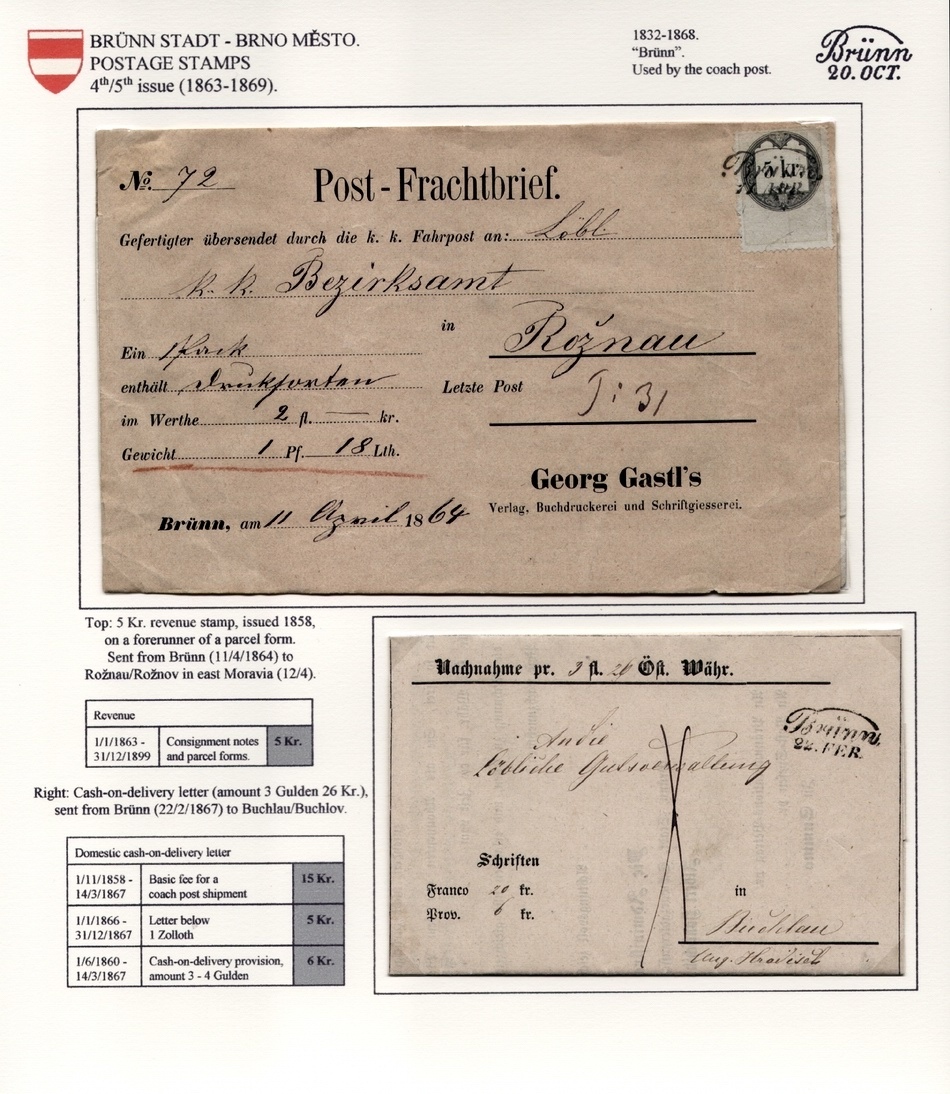 BRÜNN STADT - BRNO MĚSTO.
POSTAGE STAMPS
4th/5th issue (1863-1869).
1832-1868.
"Brünn".
Used by the coach post.
Brünn
20. OCT.
No. 72
Post-Frachtbrief.
5 kr.
Brünn
APR.
Gefertigter übersendet durch die k. k. Fahrpost an: Löbl.
k. k. Bezirksamt
in
Rožnau
Ein 1 Pack
enthält Druksorten
Letzte Post
im Werthe 2 fl. — kr.
Gewicht 1 Pf. 18 Lth.
Georg Gastl's
Verlag, Buchdruckerei und Schriftgiesserei.
Brünn, am 11 April 1864
Top: 5 Kr. revenue stamp, issued 1858,
on a forerunner of a parcel form.
Sent from Brünn (11/4/1864) to
Rožnau/Rožnov in east Moravia (12/4).
Revenue
1/1/1863 - Consignment notes 5 Kr.
31/12/1899 and parcel forms.
Right: Cash-on-delivery letter (amount 3 Gulden 26 Kr.),
sent from Brünn (22/2/1867) to Buchlau/Buchlov.
Domestic cash-on-delivery letter
1/11/1858 - Basic fee for a 15 Kr.
14/3/1867 coach post shipment
1/1/1866 - Letter below 5 Kr.
31/12/1867 1 Zolloth
1/6/1860 - Cash-on-delivery provision, 6 Kr.
14/3/1867 amount 3 - 4 Gulden
Nachnahme pr. 3 fl. Öst. Währ.
Brünn
22. FEB.
An die
Löbliche Gutsverwaltung
Schriften
Franco 20 kr.
Prov. 6 kr.
in
Buchlau
Ung. Hradisch